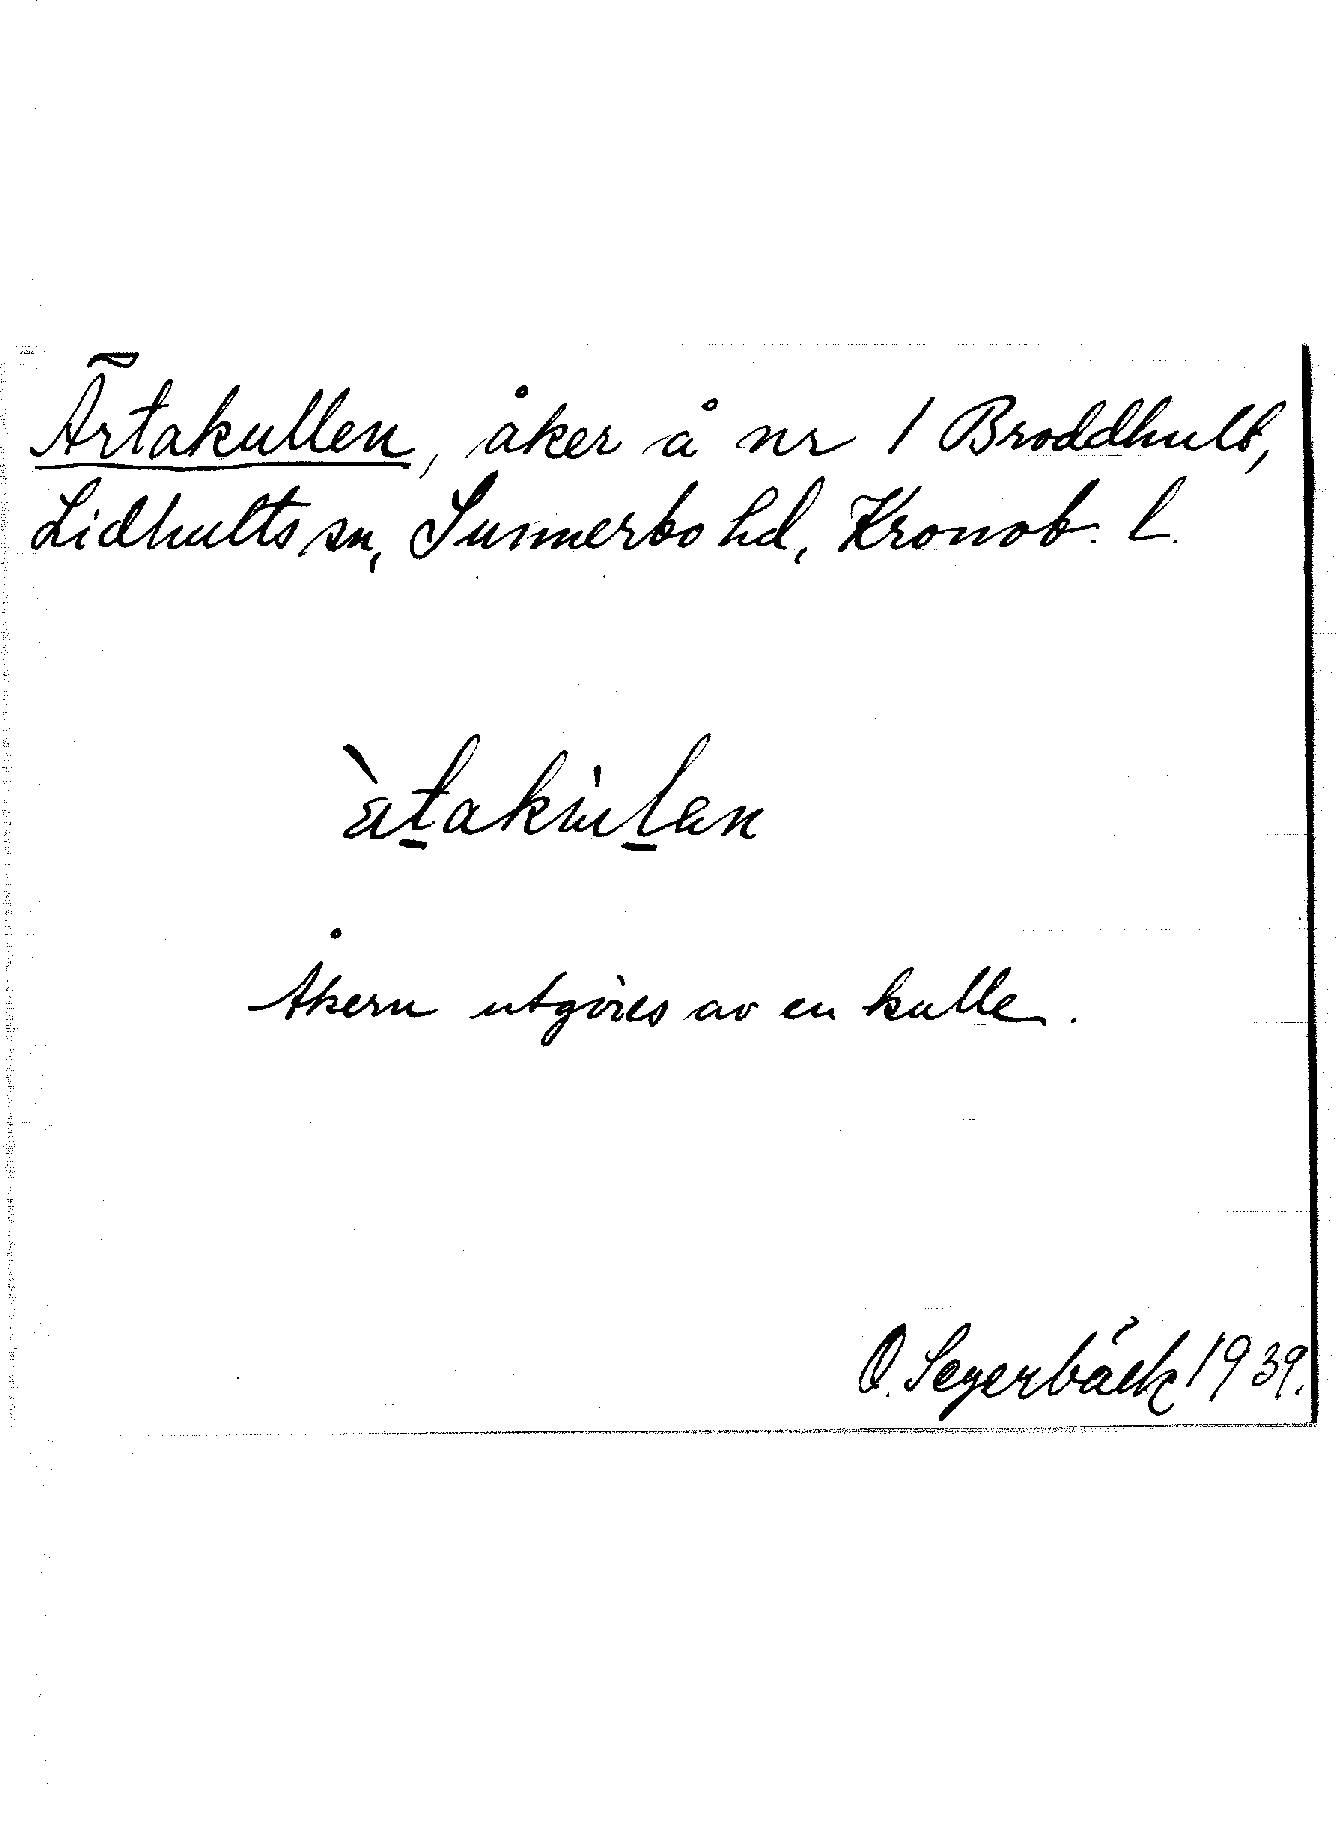 Ärtakullen, åker å nr 1 Broddhult,
Lidhults sn, Sunnerbo hd, Kronob. l.
Åkern utgöres av en kulle.
O. Segerbäck 1939.